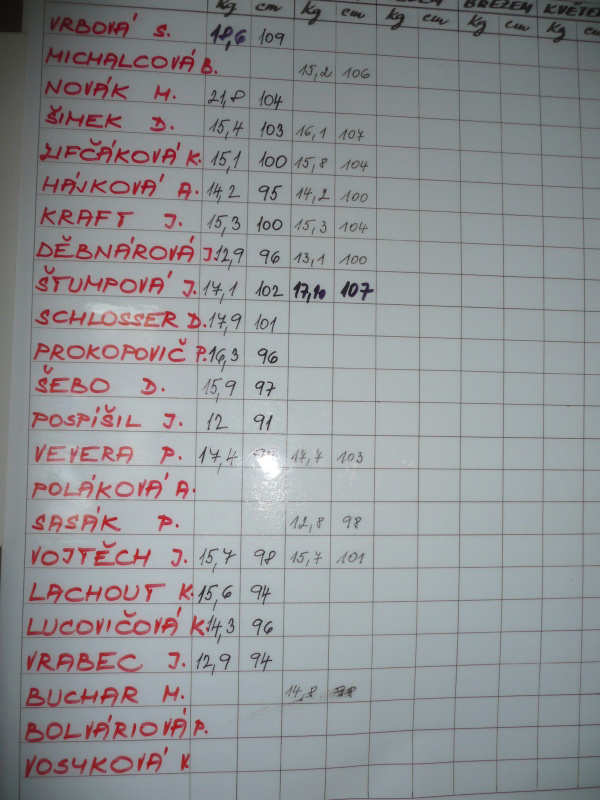 BŘEZEN KVĚTEN
kg cm kg cm kg cm kg cm kg
VRBOVÁ S. 18,6 109
MICHALCOVÁ B. 15,2 106
NOVÁK M. 21,8 104
ŠIMEK D. 15,4 103 16,1 107
K. 15,1 100 15,8 104
HÁJKOVÁ A. 14,2 95 14,2 100
KRAFT J. 15,3 100 15,3 104
DĚBNÁROVÁ J. 12,9 96 13,1 100
ŠTUMPOVÁ J. 17,1 102 107
SCHLOSSER D. 17,9 101
PROKOPOVIČ P. 16,3 96
ŠEBO D. 15,9 97
POSPÍŠIL J. 12 91
VEVERA P. 17,4 17,7 103
POLÁKOVÁ A.
SASÁK P. 12,8 98
VOJTĚCH J. 15,7 98 15,7 101
LACHOUT K. 15,6 94
LUCOVIČOVÁ K 14,3 96
VRABEC J. 12,9 94
BUCHAR M. 14,8
BOLVÁRIOVÁ P.
VOSYKOVÁ